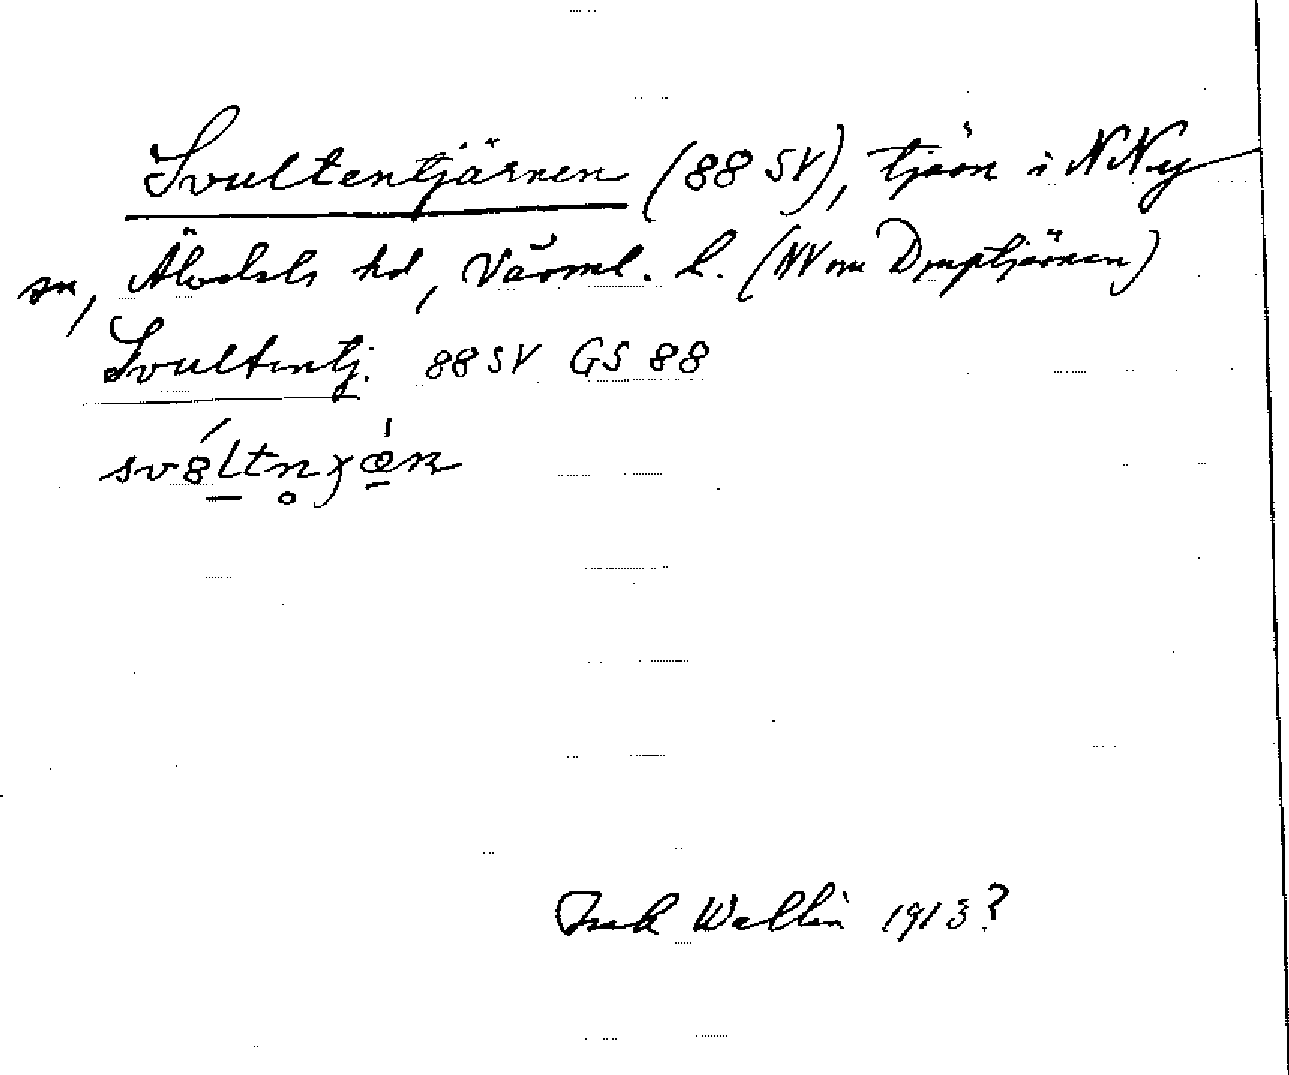 Svultentjärnen (88 SV), tjärn i N Ny
sn, Älvdals hd, Värml. l. (NV om Djuptjärnen)
Svultentj. 88 SV GS 88
Wallin 1913?